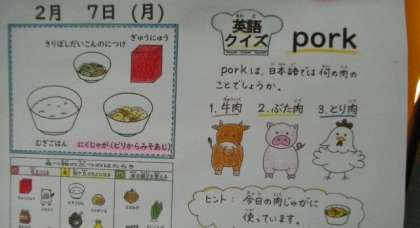 2月 7日(月)
きりぼしだいこんのにつけ
ぎゅうにゅう
むぎごはん
にくじゃが(ピリからみそあじ)
英語
クイズ
pork
porkは、日本語では何の肉の
ことでしょうか。
1.牛肉 2.ぶた肉 3.とり肉
ヒント:今日の肉じゃがに
使っています。